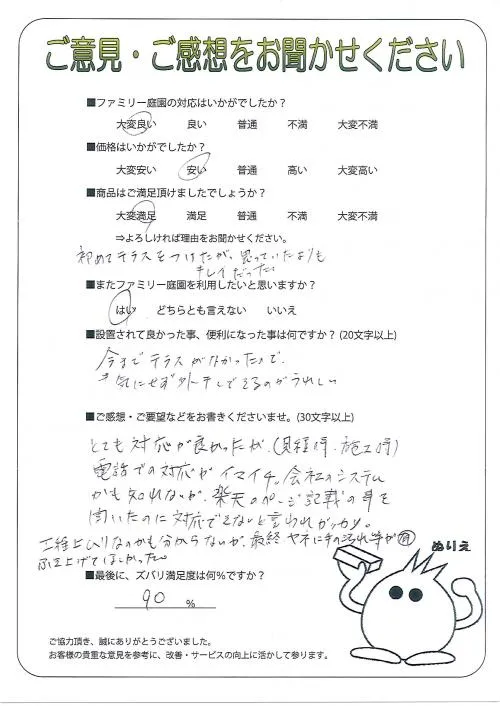 ご意見・ご感想をお聞かせください
■ファミリー庭園の対応はいかがでしたか？
大変良い 良い 普通 不満 大変不満
■価格はいかがでしたか？
大変安い 安い 普通 高い 大変高い
■商品はご満足頂けましたでしょうか？
大変満足 満足 普通 不満 大変不満
⇒よろしければ理由をお聞かせください。
初めてテラスをつけたが、思っていたよりも
キレイだった。
■またファミリー庭園を利用したいと思いますか？
はい どちらとも言えない いいえ
■設置されて良かった事、便利になった事は何ですか？(20文字以上)
今までテラスがなかったので、
気にせず外干しできるのがうれしい
■ご感想・ご要望などをお書きくださいませ。(30文字以上)
とても対応が良かったが、(見積時・施工時)
電話での対応がイマイチ。会社のシステム
かも知れないが、楽天のページ記載の事を
聞いたのに対応できないと言われガッカリ。
工程上ムリなのかも分からないが、最終ヤネに手の汚れ等が有
ふき上げてほしかった。
ぬりえ
■最後に、ズバリ満足度は何％ですか？
90 %
ご協力頂き、誠にありがとうございました。
お客様の貴重な意見を参考に、改善・サービスの向上に活かして参ります。